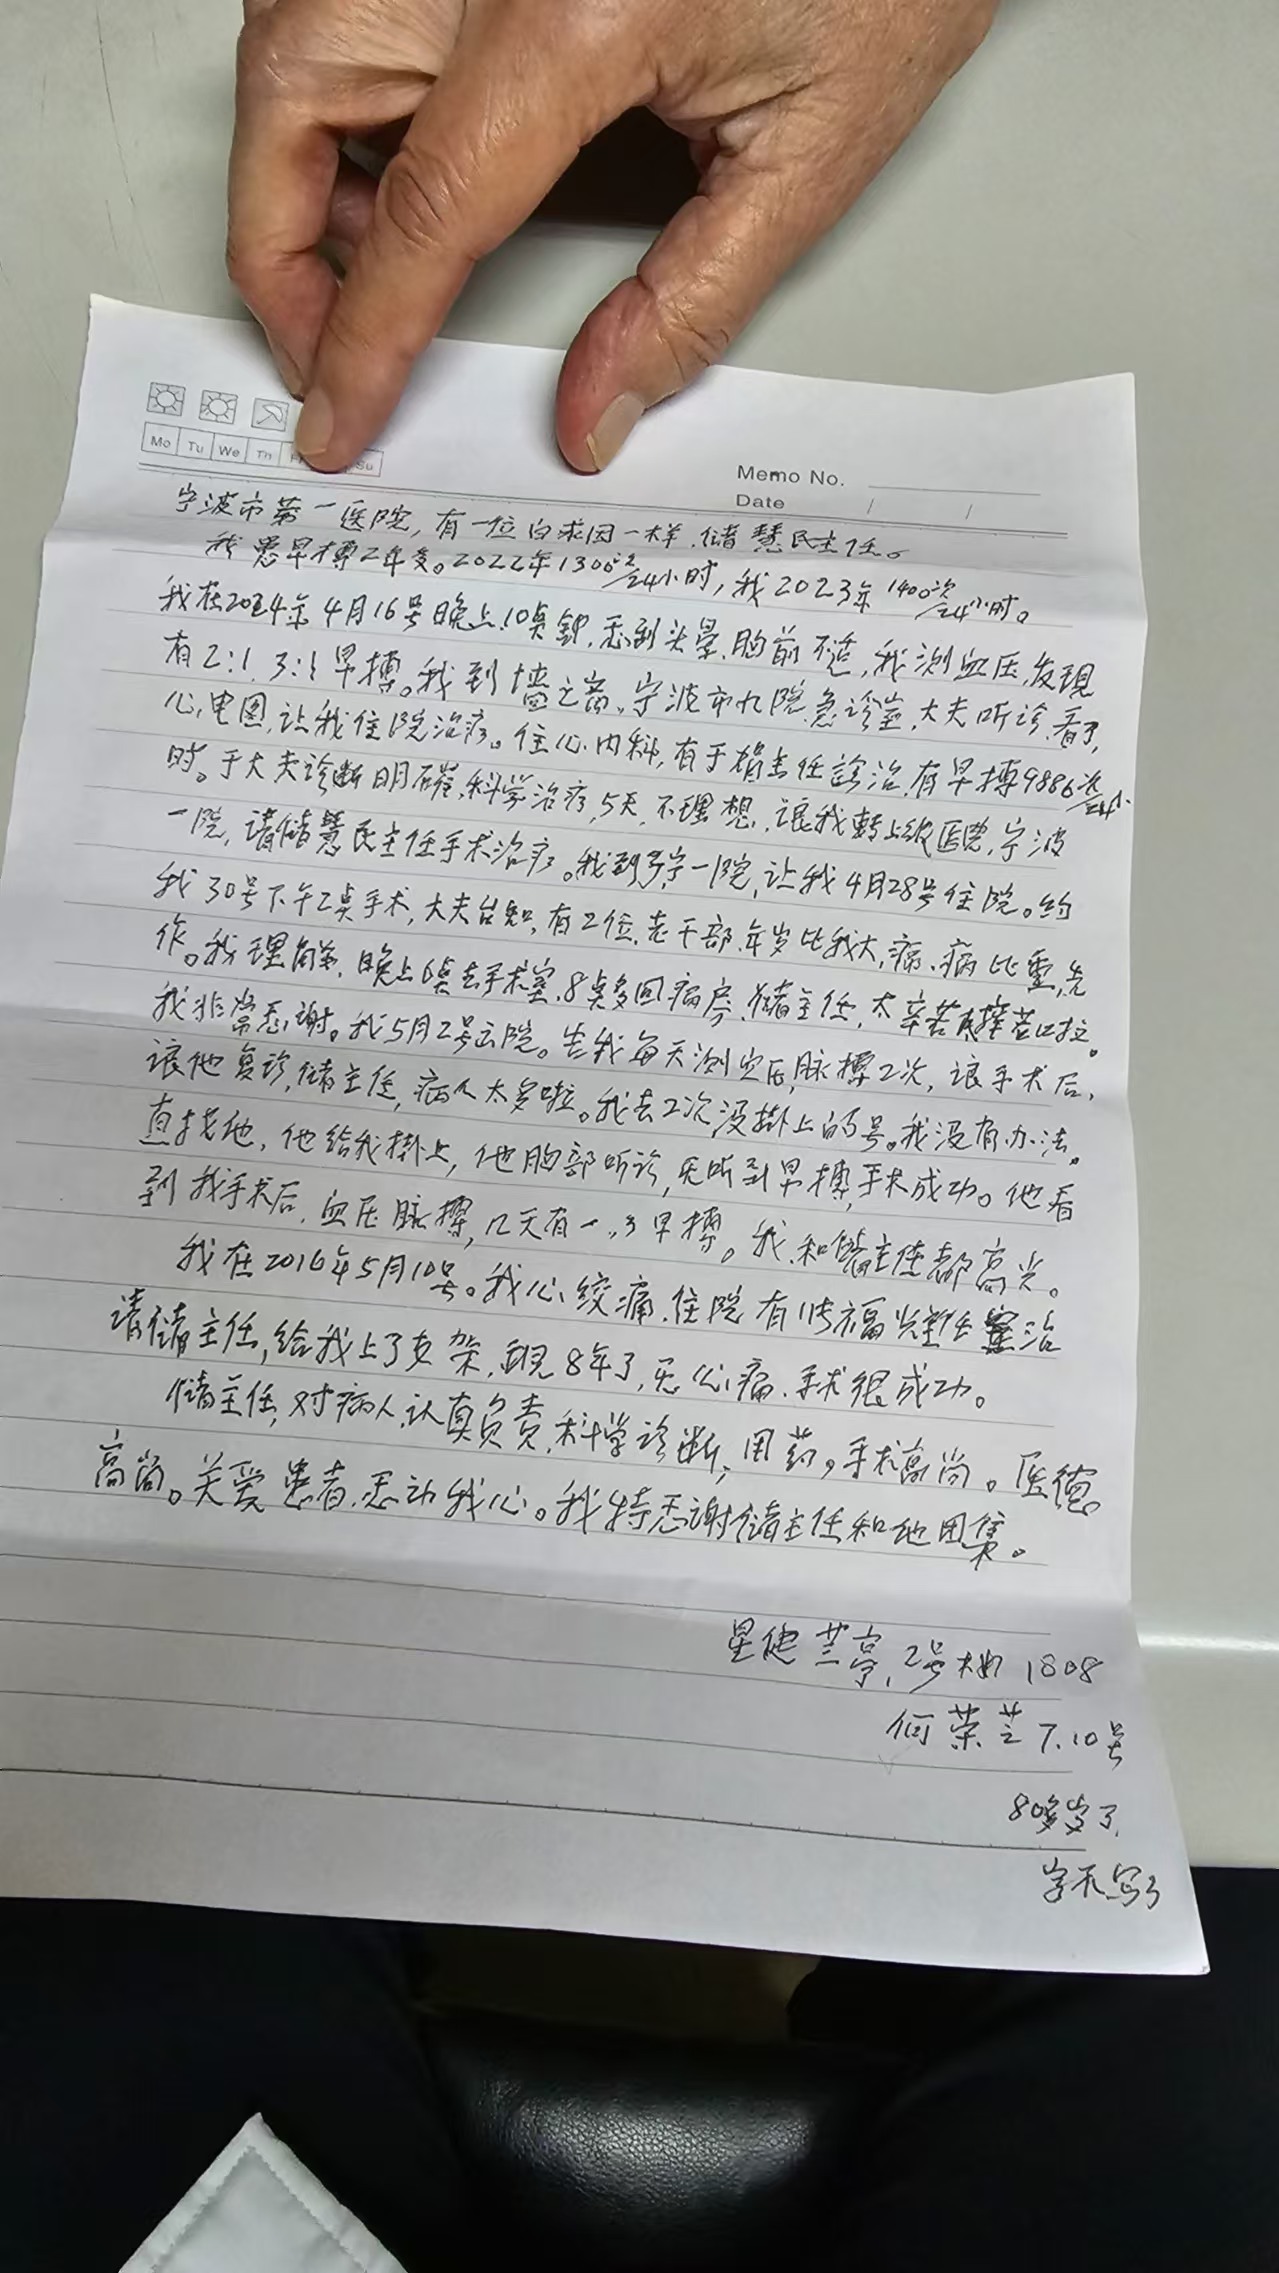 Mo Tu We Th Su
Memo No.
Date / /
宁波市第一医院,有一位白求恩一样.储慧民主任。
我患早搏2年多。2022年1300次/24小时,我2023年1400次/24小时。
我在2024年4月16号晚上10点钟,感到头晕,胸前不适,我测血压,发现
有2:1.3:1早搏。我到 宁波市九院急诊室,大夫听诊,看了,
心电图,让我住院治疗。住心内科,有于 主任诊治,有早搏9886次/24小
时。于大夫诊断明确,科学治疗,5天,不理想,让我转上级医院,宁波
一院,请储慧民主任手术治疗。我到宁一院,让我4月28号住院。约
我30号下午2点手术,大夫告知,有2位,老干部,年岁比我大,病比重,先
作。我理解,晚上6点去手术室,8点多回病房,储主任,太辛苦
我非常感谢。我5月2号出院。告我每天测血压,脉搏2次,让手术后,
让他复诊,储主任,病人太多啦。我去2次没挂上的号。我没有办法。
直找他,他给我挂上,他胸部听诊,无听到早搏,手术成功。他看
到我手术后,血压脉搏,几天有一..3早搏。我和储主任都高兴。
我在2016年5月10号。我心绞痛,住院有 主任 治
请储主任,给我上了支架,现8年了,无心痛,手术很成功。
储主任,对病人,认真负责,科学诊断,用药,手术高尚。医德
高尚。关爱患者,感动我心。我特感谢储主任和他团集。
星健兰亭,2号 1808
何荣芝7.10号
80多岁了
字不写了